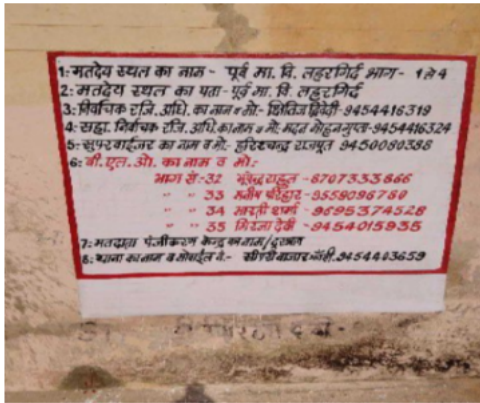 1:- मतदेय स्थल का नाम - पूर्व मा. वि. लहरगिर्द भाग - 1 से 4
2:- मतदेय स्थल का पता - पूर्व मा. वि. लहरगिर्द
3: निर्वाचक रजि. अधि. का नाम व मो:- क्षितिज द्विवेदी - 9454416319
4:- सहा. निर्वाचक रजि. अधि. का नाम व मो: मदन मोहन गुप्ता - 9454416324
5:- सुपरवाईजर का नाम व मो:- हरिश्चन्द्र राजपूत 9450080388
6: बी. एल. ओ. का नाम व मो:-
भाग सं:- 32 राहुत - 8707333866
" " 33 मनीष परिहार - 9559096780
" " 34 भारती शर्मा - 9695374528
" " 35 गिरजा देवी - 9454015935
7:- मतदाता पंजीकरण केन्द्र का नाम / दूरभाष
8: थाना का नाम व मोबाईल नं.- सीपरी बाजार झाँसी. 9454403659